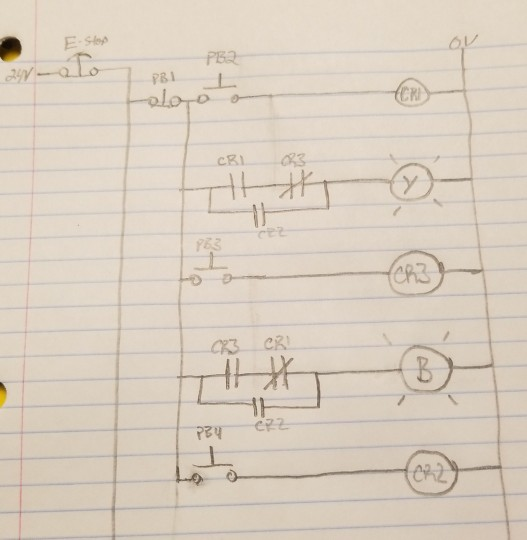 E-stop
0V
24V
PB1
PB2
CR1
CR1
CR3
Y
CR2
PB3
CR3
CR3
CR1
B
CR2
PB4
CR2